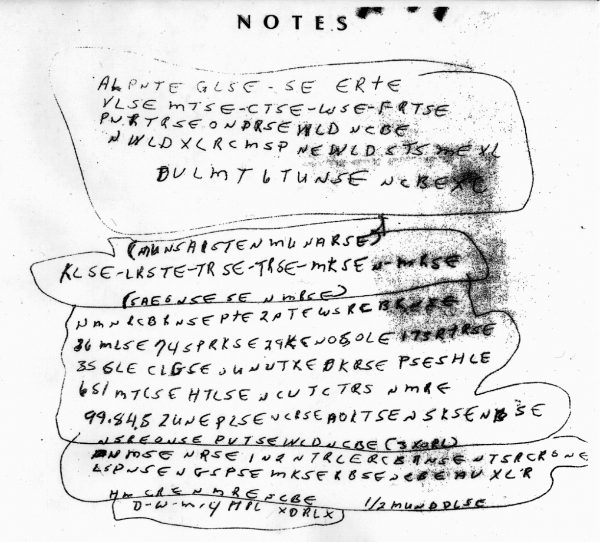 NOTES
ALPNTE GLSE-SE ERTE
VLSE MTSE-CTSE-WSE-FRTSE
PNRTRSEONDRSEWLD NCBE
NWLDXLRCMSP NEWLD STS MEXL
DULMT 6 TUNSE NCBEXE
(MUNSARSTENMUNARSE)
KLSE-LRSTE-TRSE-TRSE-MKSEN-MRSE
(SAEGNSE SE NMRSE)
NMNRCBRNSEPTE2PTEWSRCBRNSE
36 MLSE 74 SPRKSE 29KENOSOLE 173RTRSE
35 GLE CLGSE NUNUTREDKRSE PSESHLE
651 MTCSE HTLSE NCUTCTRS NMRE
99.84.52 UNEPLSE NCRSE AOLTSE NSKSENBSE
NSREONSE PUTSEWLDNCBE (3XORL)
NMSE NRSE IN2NTRLERCBRNSE NTSRCRONE
LSPNSE NGSPSE MKSERBSE NCBE AUXLR
HMCRE NMRE NCBE 1/2 MUNDDLSE
D-W-M-Y HPL XDRLX